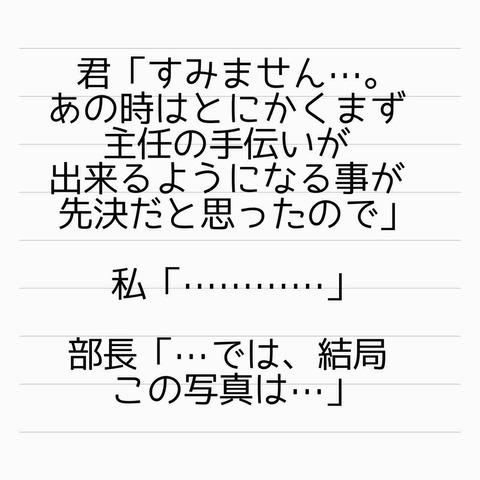 君「すみません…。
あの時はとにかくまず
主任の手伝いが
出来るようになる事が
先決だと思ったので」
私「…………」
部長「…では、結局
この写真は…」